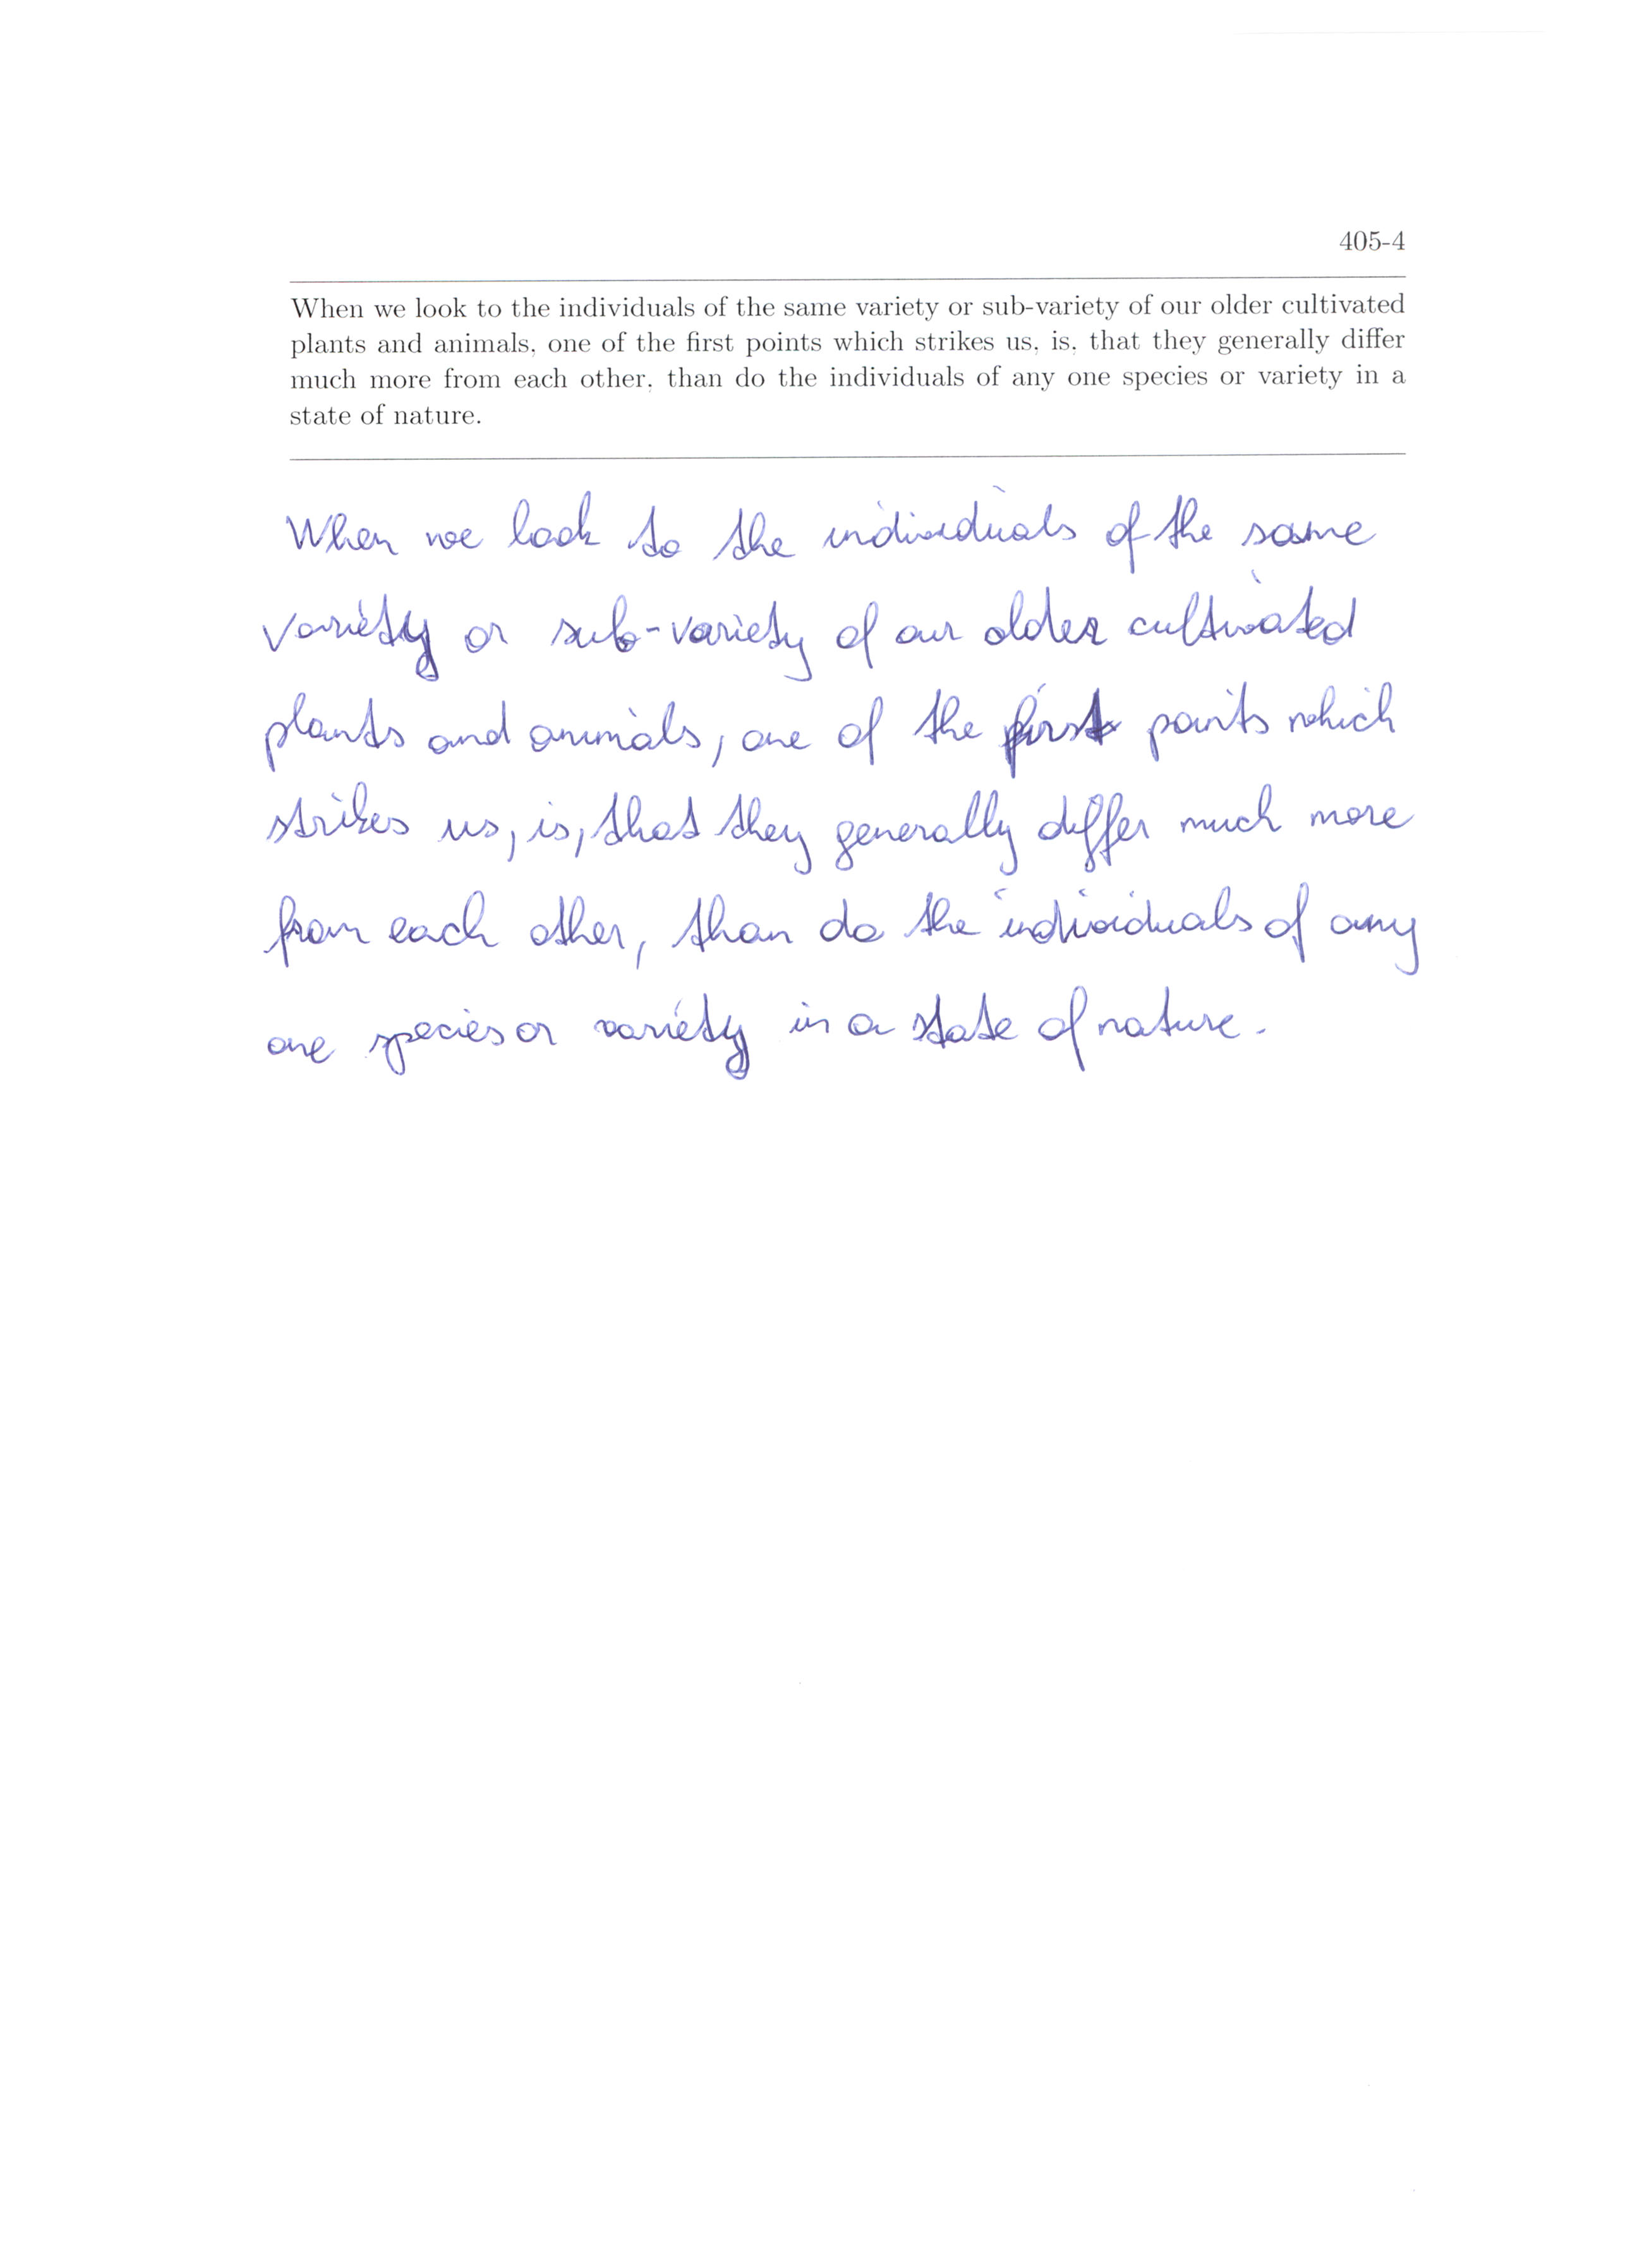 405-4
When we look to the individuals of the same variety or sub-variety of our older cultivated
plants and animals, one of the first points which strikes us, is, that they generally differ
much more from each other, than do the individuals of any one species or variety in a
state of nature.
When we look to the individuals of the same
variety or sub-variety of our older cultivated
plants and animals, one of the first points which
strikes us, is, that they generally differ much more
from each other, than do the individuals of any
one species or variety in a state of nature.